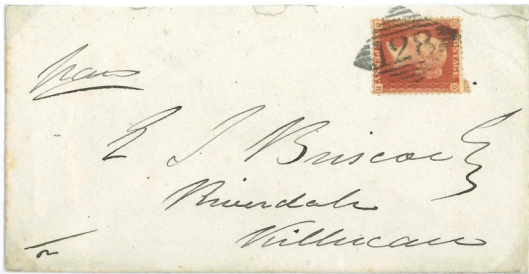 128
E J Briscoe Esq
Riverdale
Killucan